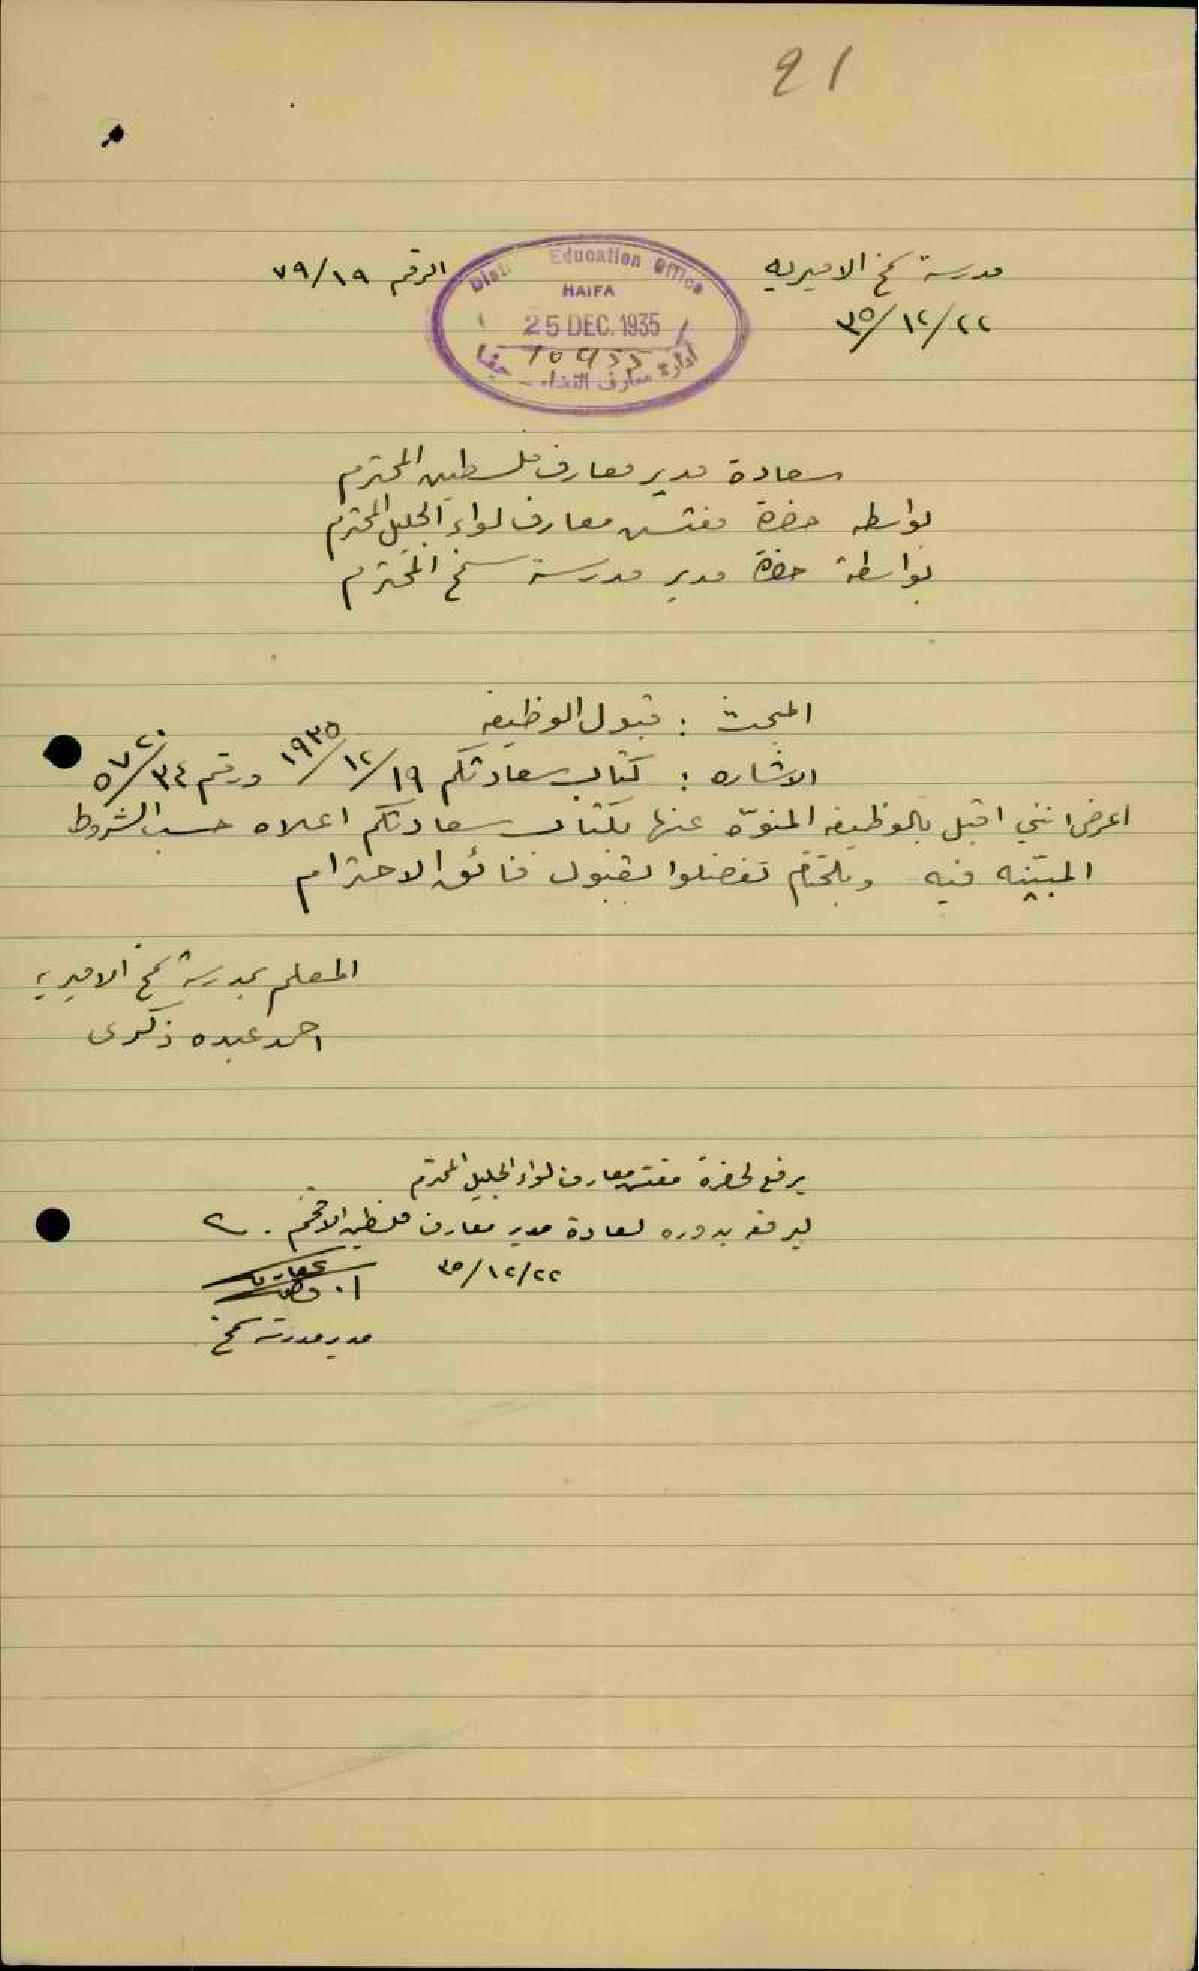 21
مدرسة سمخ الاميرية
الرقم ٧٩/١٩
٣٥/١٢/٢٢
District Education Office
HAIFA
25 DEC. 1935
ادارة معارف القضاء - حيفا
سعادة مدير معارف فلسطين المحترم
بواسطة حضرة مفتش معارف لواء الجليل المحترم
بواسطة حضرة مدير مدرسة سمخ المحترم
المبحث : قبول الوظيفه
الاشاره : كتاب سعادتكم ١٩/١٢/١٩٣٥ ورقم
اعرض انني اقبل بالوظيفه المنوّه عنها بكتاب سعادتكم اعلاه حسب الشروط
المبيّنه فيه وبالختام تفضلوا بقبول فائق الاحترام
المعلم بمدرسة سمخ الاميرية
احمد عبده زكرى
يرفع لحضرة مفتش معارف لواء الجليل المحترم
ليرفعه بدوره لسعادة مدير معارف فلسطين الافخم .
٣٥/١٢/٢٢
مدير مدرسة سمخ